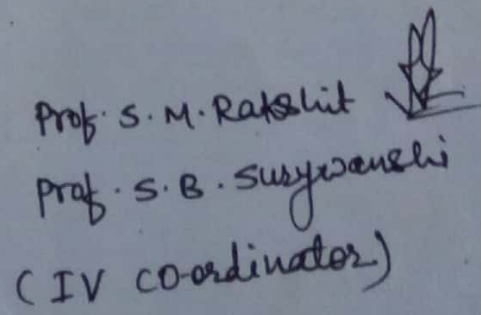 Prof. S. M. Rakshit
Prof. S. B. Suryawanshi
(IV CO-ordinator)